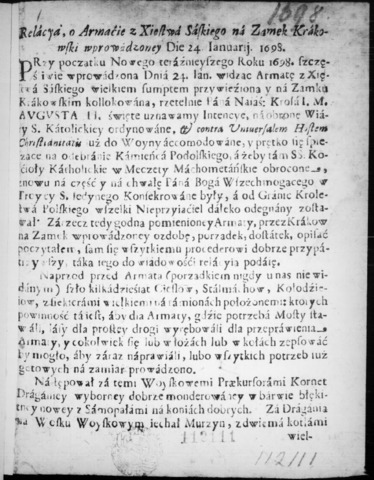 1398
Relácya, o Armacie z Xiestwá Sáskiego ná Zamek Krákowski
wprowádzoney Die 24 Ianuarij. 1698.
PRzy początku Nowego teráźnieyszego Roku 1698. szczę-
śliwie wprowádzona Dniá 24 Ian. widząc Armatę z Xię-
stwá Sáskiego wielkiem sumptem przywiezioną y ná Zamku
Krákowskim kollokowána, rzetelnie Páná Naiáś: Krolá I. M.
AVGVSTA II. święte uznawamy Intencye, ná obronę Wiá-
ry S. Kátolickiey ordynowáne, & contra Universalem Hostem
Christianitatis iuż do Woyny áccomodowáne, y prętko się spie-
szące na odebránie Kámieńcá Podolskiego, áżeby tám SS. Ko-
ścioły Káthollickie w Meczety Máchometáńskie obrocone,
znowu ná część y ná chwałę Páná Bogá Wszechmogącego w
Troycy S. Iedynego Konsekrowáne były, á od Gránic Krole-
stwá Polskiego wszelki Nieprzyiaciel dáleko odegnány zosta-
wał Zá rzecz tedy godną pomienioney Armáty, przez Krákow
ná Zamek wprowádzoney ozdobę, porządek, dostátek, opisáć
poczytałem, sam się wszytkiemu procederowi dobrze przypá-
trywszy, táką tego do wiádomości relácyą podáię.
Naprzod przed Armatą (porządkiem nigdy u nas nie wi-
dánym) szło kilkádziesiąt Cieślow, Stálmáchow, Kołodzie-
iow, z siekierámi wielkiemi ná rámionách położonemi: ktorych
powinność tá iest, áby dla Armáty, gdzie potrzebá Mosty stá-
wiáli, lásy dla prostey drogi wyrębowáli dla przepráwienia
Armáty, y cokolwiek się lub w łożách lub w kołách zepsowáć
by mogło, áby záraz nápráwiáli, lubo wszytkich potrzeb iuż
gotowych ná zamiar prowádzono.
Nástępował zá temi Woyskowemi Prækursorámi Kornet
Drágániey wyborney dobrze monderowáney w bárwie błęki-
tney nowey z Sámopałámi ná koniách dobrych. Zá Drágánią
ná Wosku Woyskowym iechał Murzyn, z dwiemá kotłámi
wiel-
112111
112111